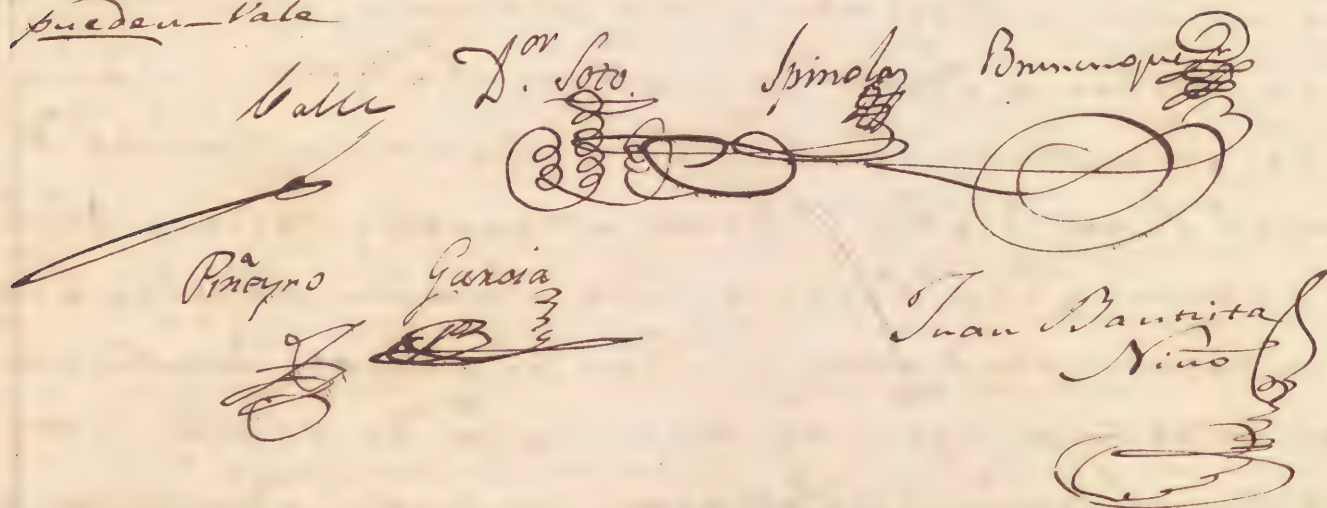 pueden_Vale
Valle D.or Soto. Spinola
Piñeyro Garcia
Juan Bautista
Niño